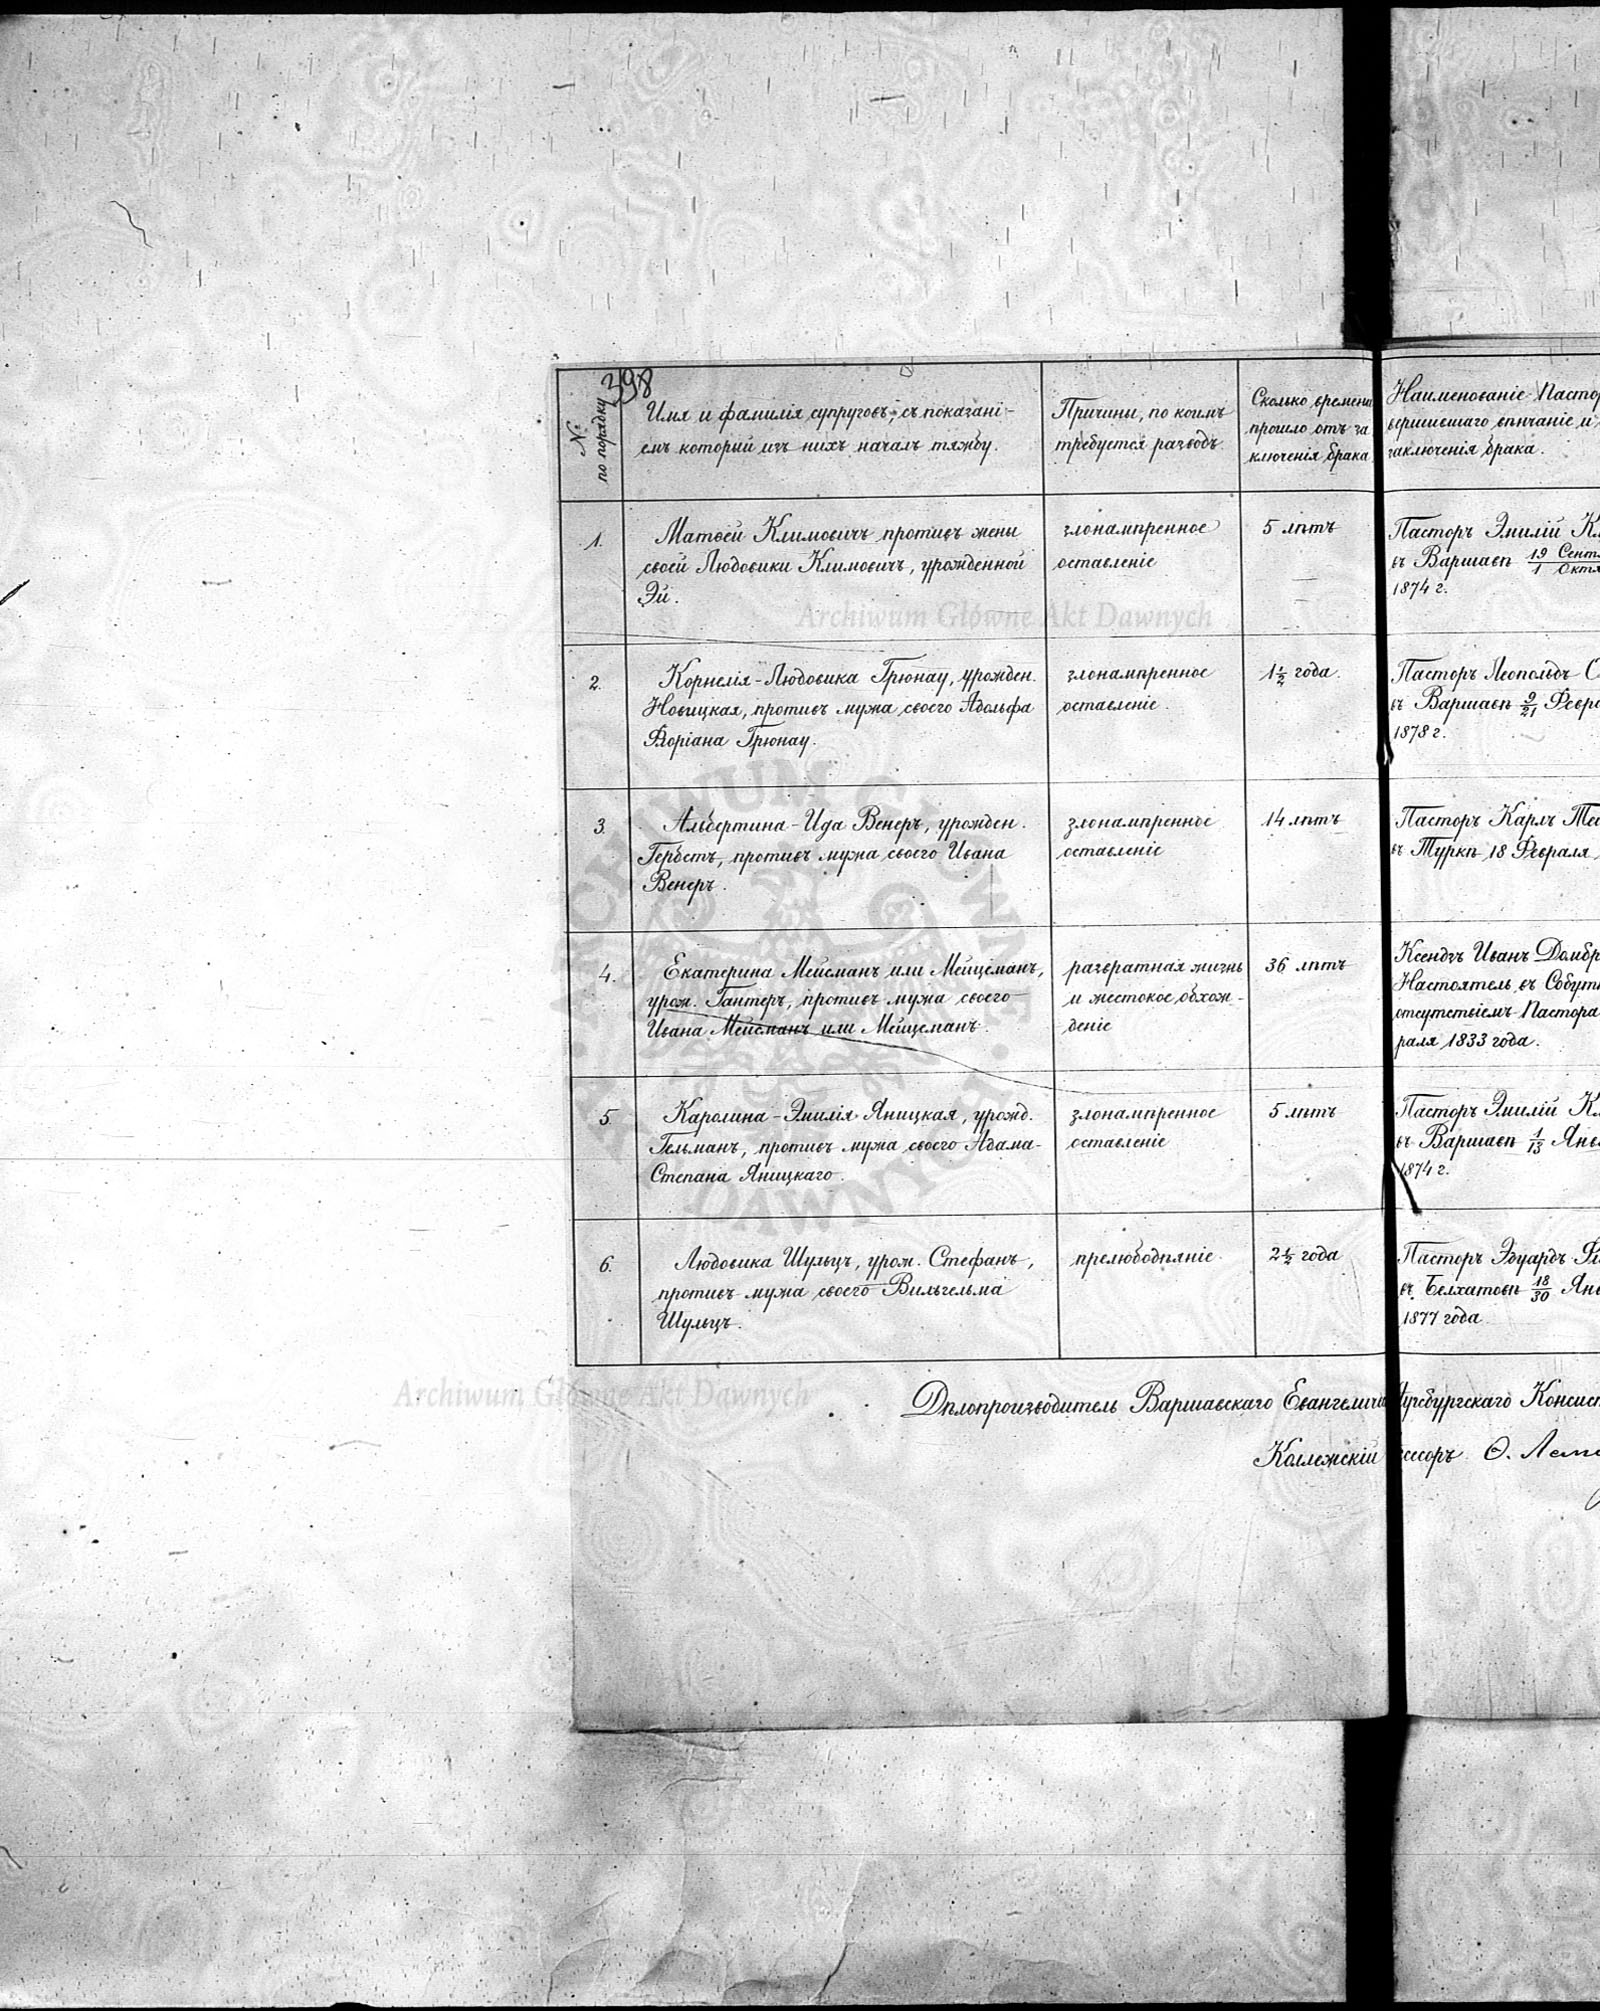 398
№ по порядку
Имя и фамилія супруговъ, съ показані-
емъ который изъ нихъ началъ тяжбу.
Причины, по коимъ
требуется разводъ
Сколько времени
прошло отъ за
ключенія брака
Наименованіе Пастор
вершившаго вѣнчаніе и
заключенія брака.
1.
Матвей Климовичъ противъ жены
своей Людовики Климовичъ, урожденной
Эй.
злонамѣренное
оставленіе
5 лѣтъ
Пасторъ Эмилій К
въ Варшавѣ 19 Сент / 1 Октя
1874 г.
2.
Корнелія-Людовика Грюнау, урожден.
Новицкая, противъ мужа своего Адольфа
Флоріана Грюнау.
злонамѣренное
оставленіе.
1½ года.
Пасторъ Леопольдъ
въ Варшавѣ 9/21 Февра
1878 г.
3.
Альбертина-Ида Венеръ, урожден.
Гербстъ, противъ мужа своего Ивана
Венеръ.
злонамѣренное
оставленіе
14 лѣтъ
Пасторъ Карлъ Те
въ Туркѣ 18 Февраля
4.
Екатерина Мейсманъ или Мейцсманъ,
урож. Гантеръ, противъ мужа своего
Ивана Мейсманъ или Мейцсманъ.
развратная жизнь
и жестокое обхож-
деніе
36 лѣтъ
Ксендзъ Иванъ Домбр
Настоятель въ Собут
отсутствіемъ Пастора
раля 1833 года.
5.
Каролина-Эмилія Яницкая, урожд.
Гельманъ, противъ мужа своего Адама-
Степана Яницкаго.
злонамѣренное
оставленіе
5 лѣтъ
Пасторъ Эмилій К
въ Варшавѣ 1/13 Янв
1874 г.
6.
Людовика Шульцъ, урож. Стефанъ,
противъ мужа своего Вильгельма
Шульцъ.
прелюбодѣяніе.
2½ года
Пасторъ Эдуардъ
въ Белхатовѣ 18/30 Янв
1877 года
Дѣлопроизводитель Варшавскаго Евангеличе Аугсбургскаго Консист
Коллежскій ссоръ О.
Archiwum Główne Akt Dawnych
ARCHIWUM GŁÓWNE AKT DAWNYCH
Archiwum Główne Akt Dawnych